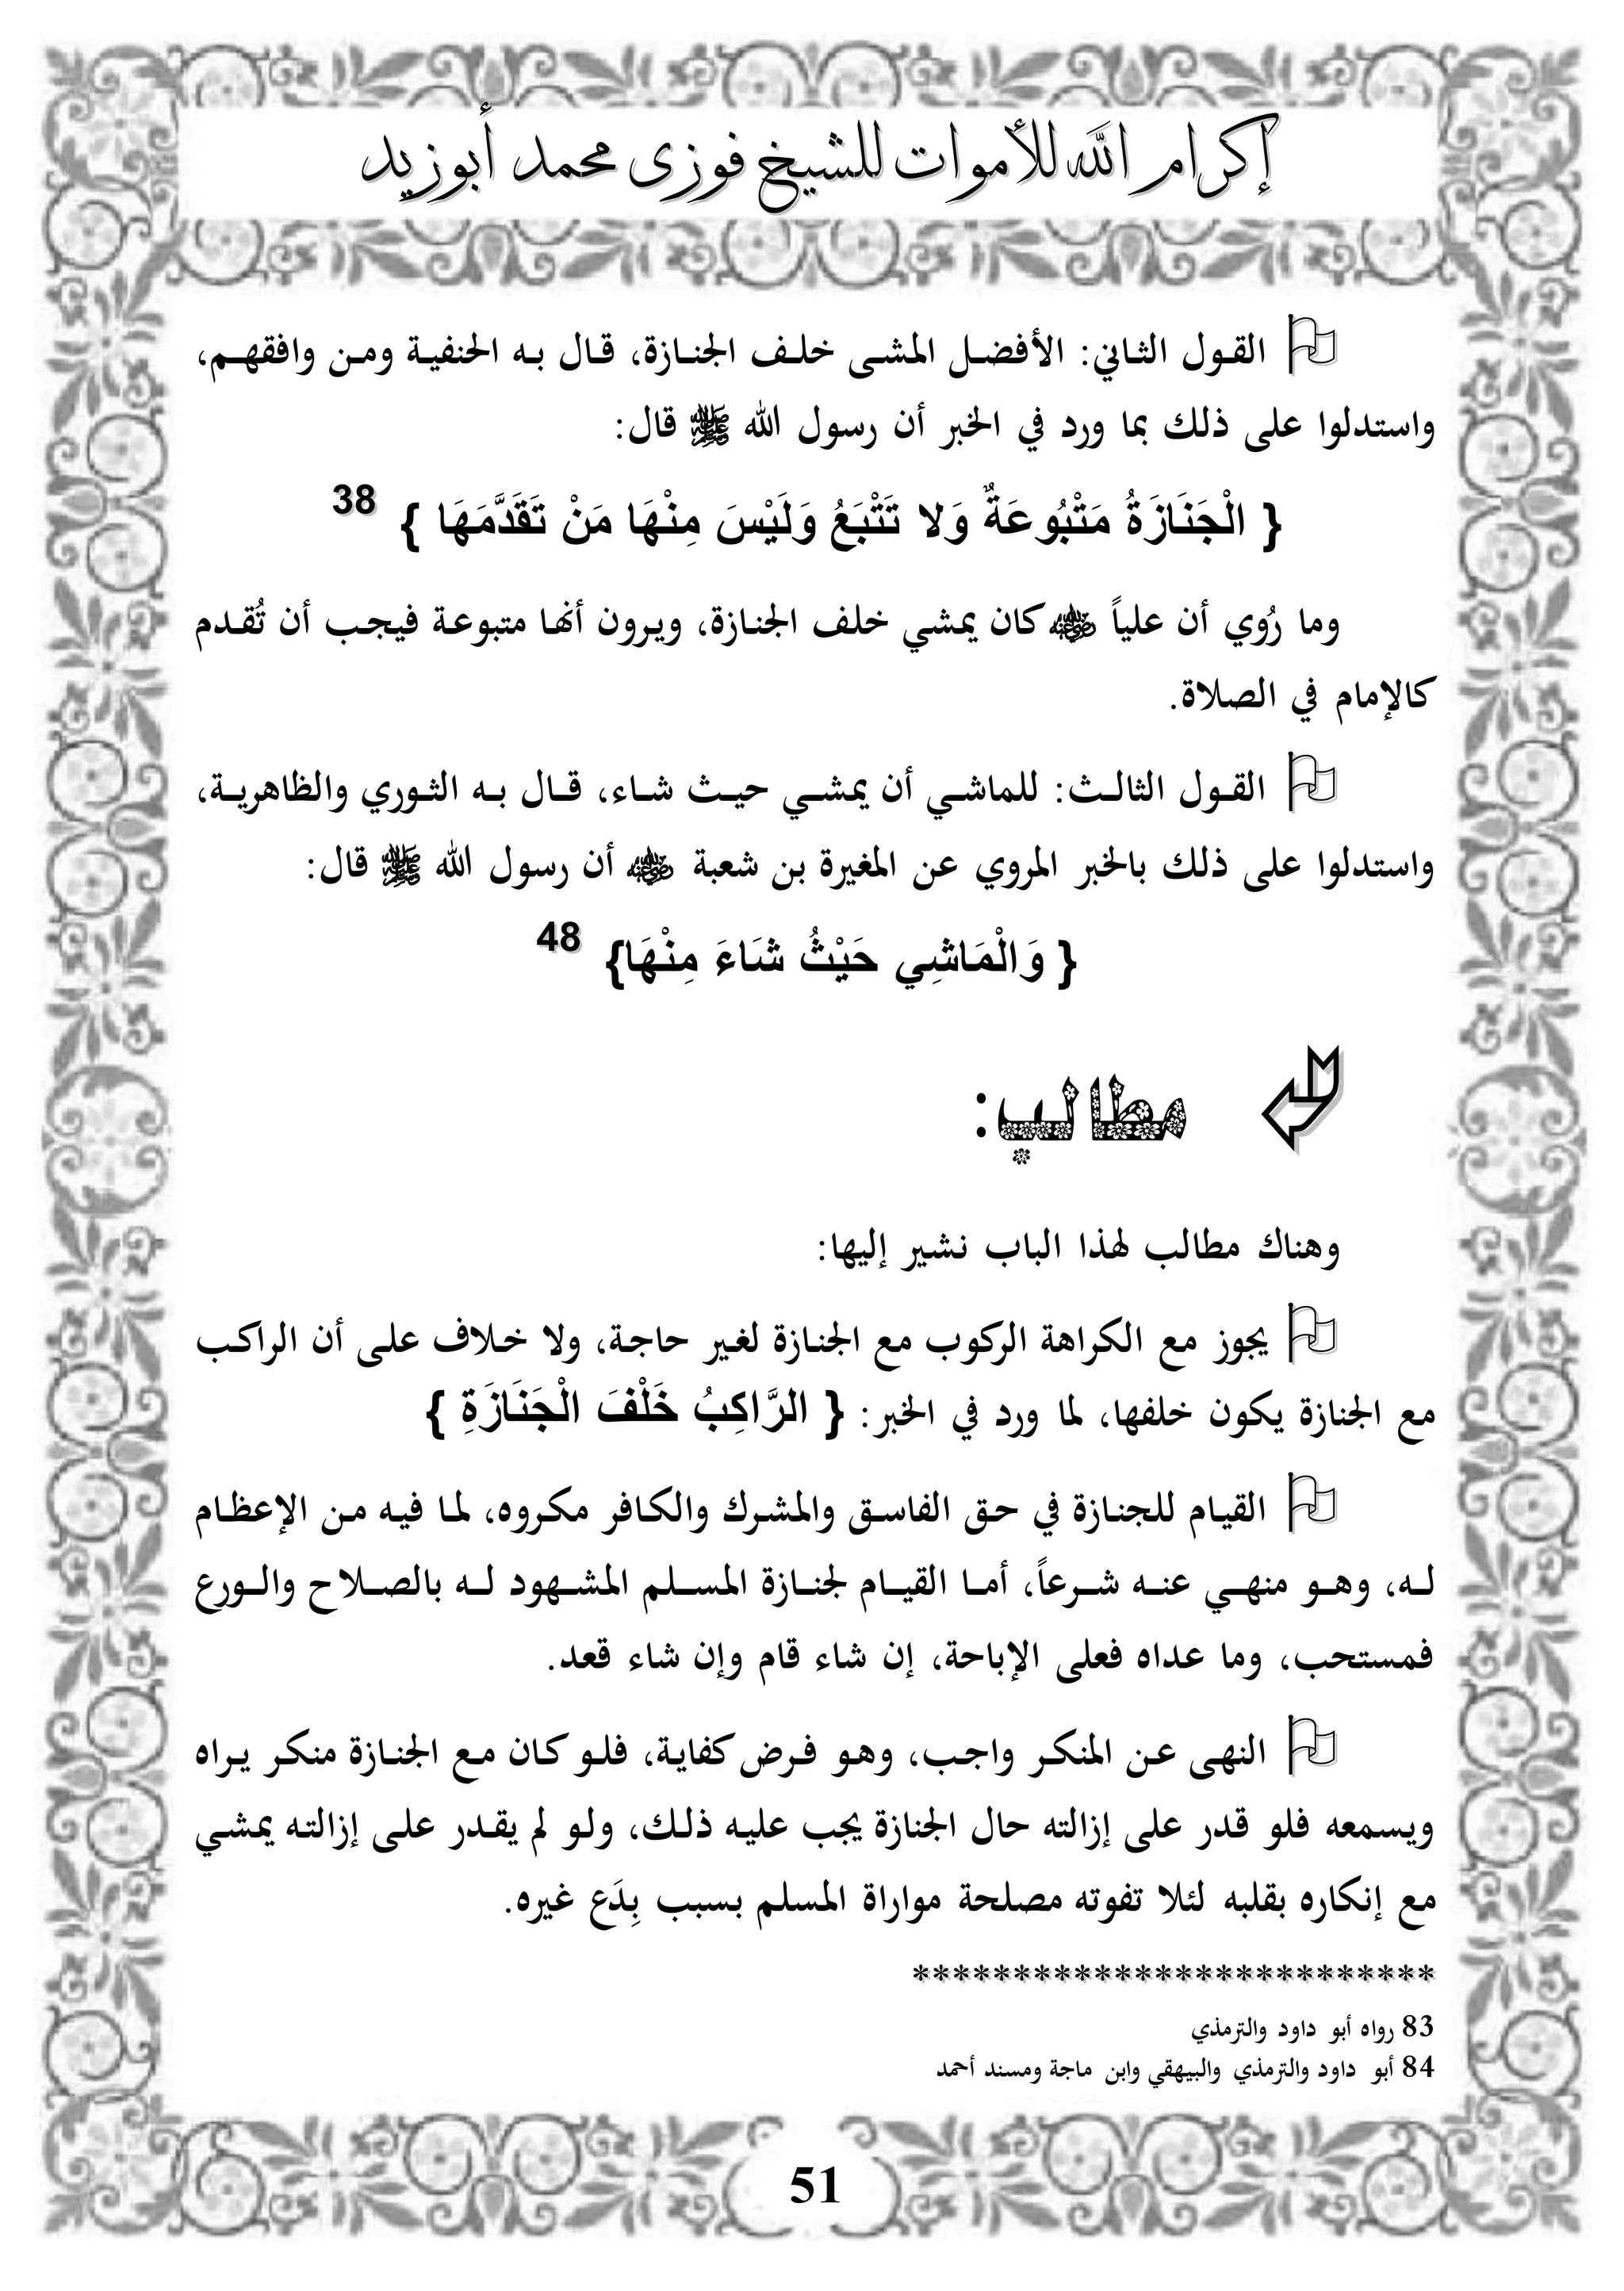 إكرام الله للأموات للشيخ فوزى محمد أبوزيد
القول الثاني: الأفضل المشى خلف الجنازة، قال به الحنفية ومن وافقهم،
واستدلوا على ذلك بما ورد في الخبر أن رسول الله ﷺ قال:
{ الْجَنَازَةُ مَتْبُوعَةٌ وَلا تَتْبَعُ وَلَيْسَ مِنْهَا مَنْ تَقَدَّمَهَا } 38
وما رُوي أن علياً ﵁ كان يمشي خلف الجنازة، ويرون أنها متبوعة فيجب أن تُقدم
كالإمام في الصلاة.
القول الثالث: للماشي أن يمشي حيث شاء، قال به الثوري والظاهرية،
واستدلوا على ذلك بالخبر المروي عن المغيرة بن شعبة ﵁ أن رسول الله ﷺ قال:
{ وَالْمَاشِي حَيْثُ شَاءَ مِنْهَا} 48
مطالب:
وهناك مطالب لهذا الباب نشير إليها:
يجوز مع الكراهة الركوب مع الجنازة لغير حاجة، ولا خلاف على أن الراكب
مع الجنازة يكون خلفها، لما ورد في الخبر: { الرَّاكِبُ خَلْفَ الْجَنَازَةِ }
القيام للجنازة في حق الفاسق والمشرك والكافر مكروه، لما فيه من الإعظام
له، وهو منهي عنه شرعاً، أما القيام لجنازة المسلم المشهود له بالصلاح والورع
فمستحب، وما عداه فعلى الإباحة، إن شاء قام وإن شاء قعد.
النهى عن المنكر واجب، وهو فرض كفاية، فلو كان مع الجنازة منكر يراه
ويسمعه فلو قدر على إزالته حال الجنازة يجب عليه ذلك، ولو لم يقدر على إزالته يمشي
مع إنكاره بقلبه لئلا تفوته مصلحة مواراة المسلم بسبب بِدَع غيره.
**************************
83 رواه أبو داود والترمذي
84 أبو داود والترمذي والبيهقي وابن ماجة ومسند أحمد
51